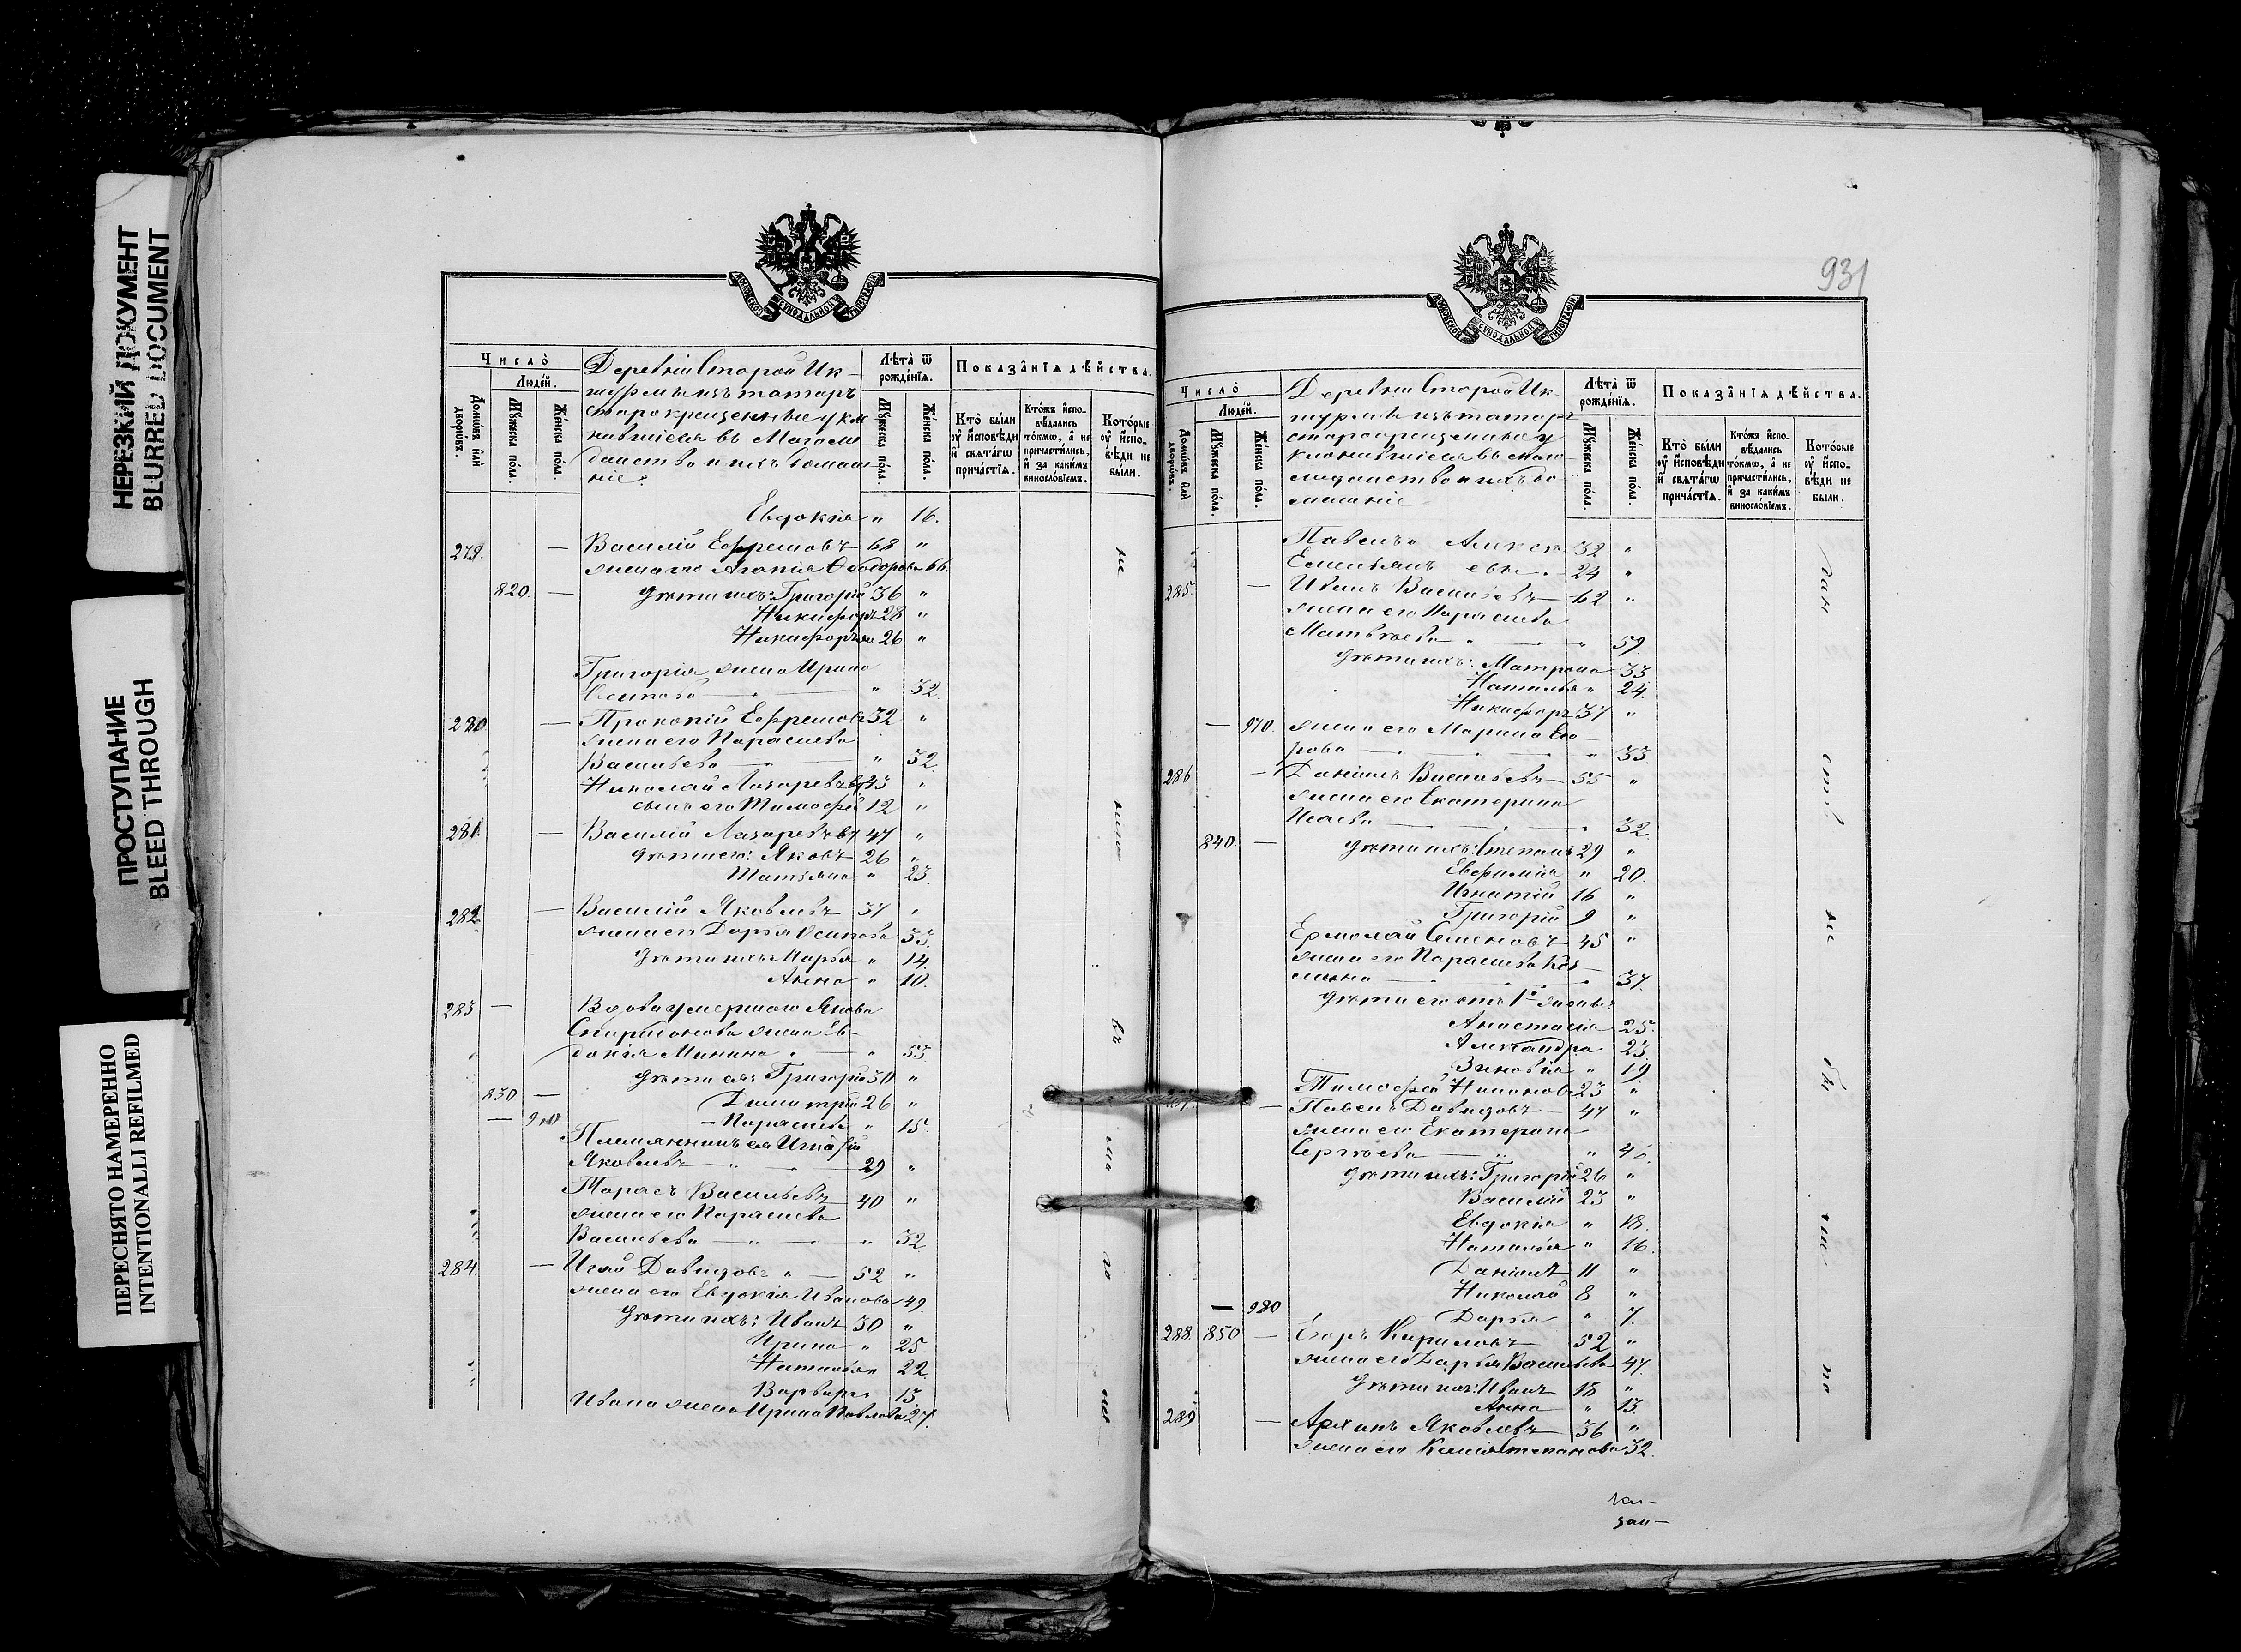 НЕРЕЗКИЙ ДОКУМЕНТ
BLURRED DOCUMENT
ПРОСТУПАНИЕ
BLEED THROUGH
ПЕРЕСНЯТО НАМЕРЕННО
INTENTIONALLI REFILMED
МОСКОВСКОЙ СѴНОДАЛЬНОЙ ТѴПОГРАФІИ
Число̀
Людей.
Домѡвъ или дворѡвъ.
Мꙋжеска пола.
Женска пола.
Деревни Старой Ик-
шурмы изъ татаръ
старокрещенные укло
нившіеся въ Магоме
данство и ихъ домаш
ніе.
Лѣта ѿ рожденїѧ.
Мꙋжеска пола.
Женска пола.
Показанїѧ дѣйства.
Кто были
ᲂу исповѣди
и свѧтагѡ
причастїѧ.
Ктожъ испо-
вѣдались
токмѡ, а не
причастились,
и за какимъ
винословїемъ.
Которые
ᲂу испо-
вѣди не
были.
Евдокія " 16.
279. — Василій Ефремовъ 68 "
жена его Агапія Ѳеодорова 66.
820. — дѣти ихъ: Григорій 36 "
Никифоръ 28 "
Никифоръ 26 "
Григорія жена Ирина
Осипова — " 32.
280 — Прокопій Ефремовъ 32 "
жена его Параскева
Васильева — " 32.
Николай Лазаревъ 43 "
сынъ его Тимофей 12 "
281. — Василій Лазаревъ 47 "
дѣти его: Яковъ 26 "
Татьяна " 23.
282. — Василій Яковлевъ 37 "
жена его Дарья Осипова 33.
дѣти ихъ: Марья " 14.
Анна " 10.
283 — Вдова умершаго Якова
Спиридонова жена Ев-
докія Минина " — " 53.
дѣти ея: Григорій 30 "
830 — Димитрій 26 "
— Параскева " 15.
Племянникъ ея Игнатій
Яковлевъ — " — 29 "
Тарасъ Васильевъ 40 "
жена его Параскева
Васильева — " — " 32
284. — Давидовъ " — 52 "
жена его Евдокія Иванова 49.
дѣти ихъ: Иванъ 30 "
Ирина " 25
Наталья 22
Варвара 13.
Ивана жена Ирина Павлова 27.
931
МОСКОВСКОЙ СѴНОДАЛЬНОЙ ТѴПОГРАФІИ
Число̀
Людей.
Домѡвъ или дворѡвъ.
Мꙋжеска пола.
Женска пола.
Деревни Старой Ик-
шурмы изъ татаръ
старокрещенные у
клонившіеся въ маго
меданство и ихъ до
машніе
Лѣта ѿ рожденїѧ.
Мꙋжеска пола.
Женска пола.
Показанїѧ дѣйства.
Кто были
ᲂу исповѣди
и свѧтагѡ
причастїѧ.
Ктожъ испо-
вѣдались
токмѡ, а не
причастились,
и за какимъ
винословїемъ.
Которые
ᲂу испо-
вѣди не
были.
Павелъ Алексѣ 32 "
Емельянъ евы 24 "
285. — Иванъ Васильевъ 62 "
жена его Параскева
Матвѣева " — " 59.
дѣти ихъ: Матрона 33
Наталья " 24.
Никифоръ 37 "
— 970. жена его Марина Его-
рова — " 33
286 — Даніилъ Васильевъ 55 "
жена его Екатерина
Исаева — " 32.
840. — дѣти ихъ: Степанъ 29 "
Евфимія " 20.
Игнатій 16 "
Григорій 9 "
Ермолай Семеновъ 45 "
жена его Параскева Козь-
мина — " 37.
дѣти его отъ 1й жены:
Анастасія 25.
Александра 23.
Зиновія " 19
Тимофей 23 "
— Павелъ Давидовъ — 47 "
жена его Екатерина
Сергѣева — "
дѣти ихъ: Григорій 26 "
Василій 23 "
Евдокія " 18.
Наталья " 16.
Даніилъ 11 "
Николай 8 "
— 980 Дарья " 7.
288. 850 — Егоръ Кириловъ 52 "
жена его Дарья Васильева 47.
дѣти ихъ: Иванъ 18 "
Анна " 13.
289 — Архипъ Яковлевъ 36 "
жена его Степанова 32.